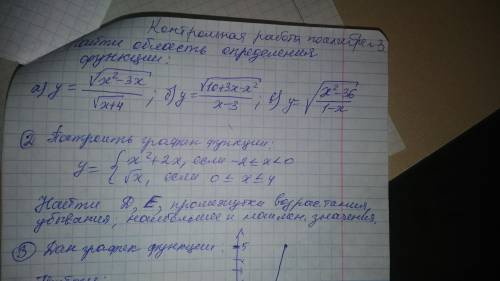 Контрольная работа по алгебре-3.
Найти область определения
функции:
а) y = √(x²-3x) / √(x+4) ; б) y = √(10+3x-x²) / (x-3) ; в) y = √((x²-36) / (1-x))
② Построить график функции:
y = { x²+2x, если -2 ≤ x < 0
√x, если 0 ≤ x ≤ 4
Найти D, E, промежутки возрастания,
убывания, наибольшее и наимен. значения.
③ Дан график функции.
5